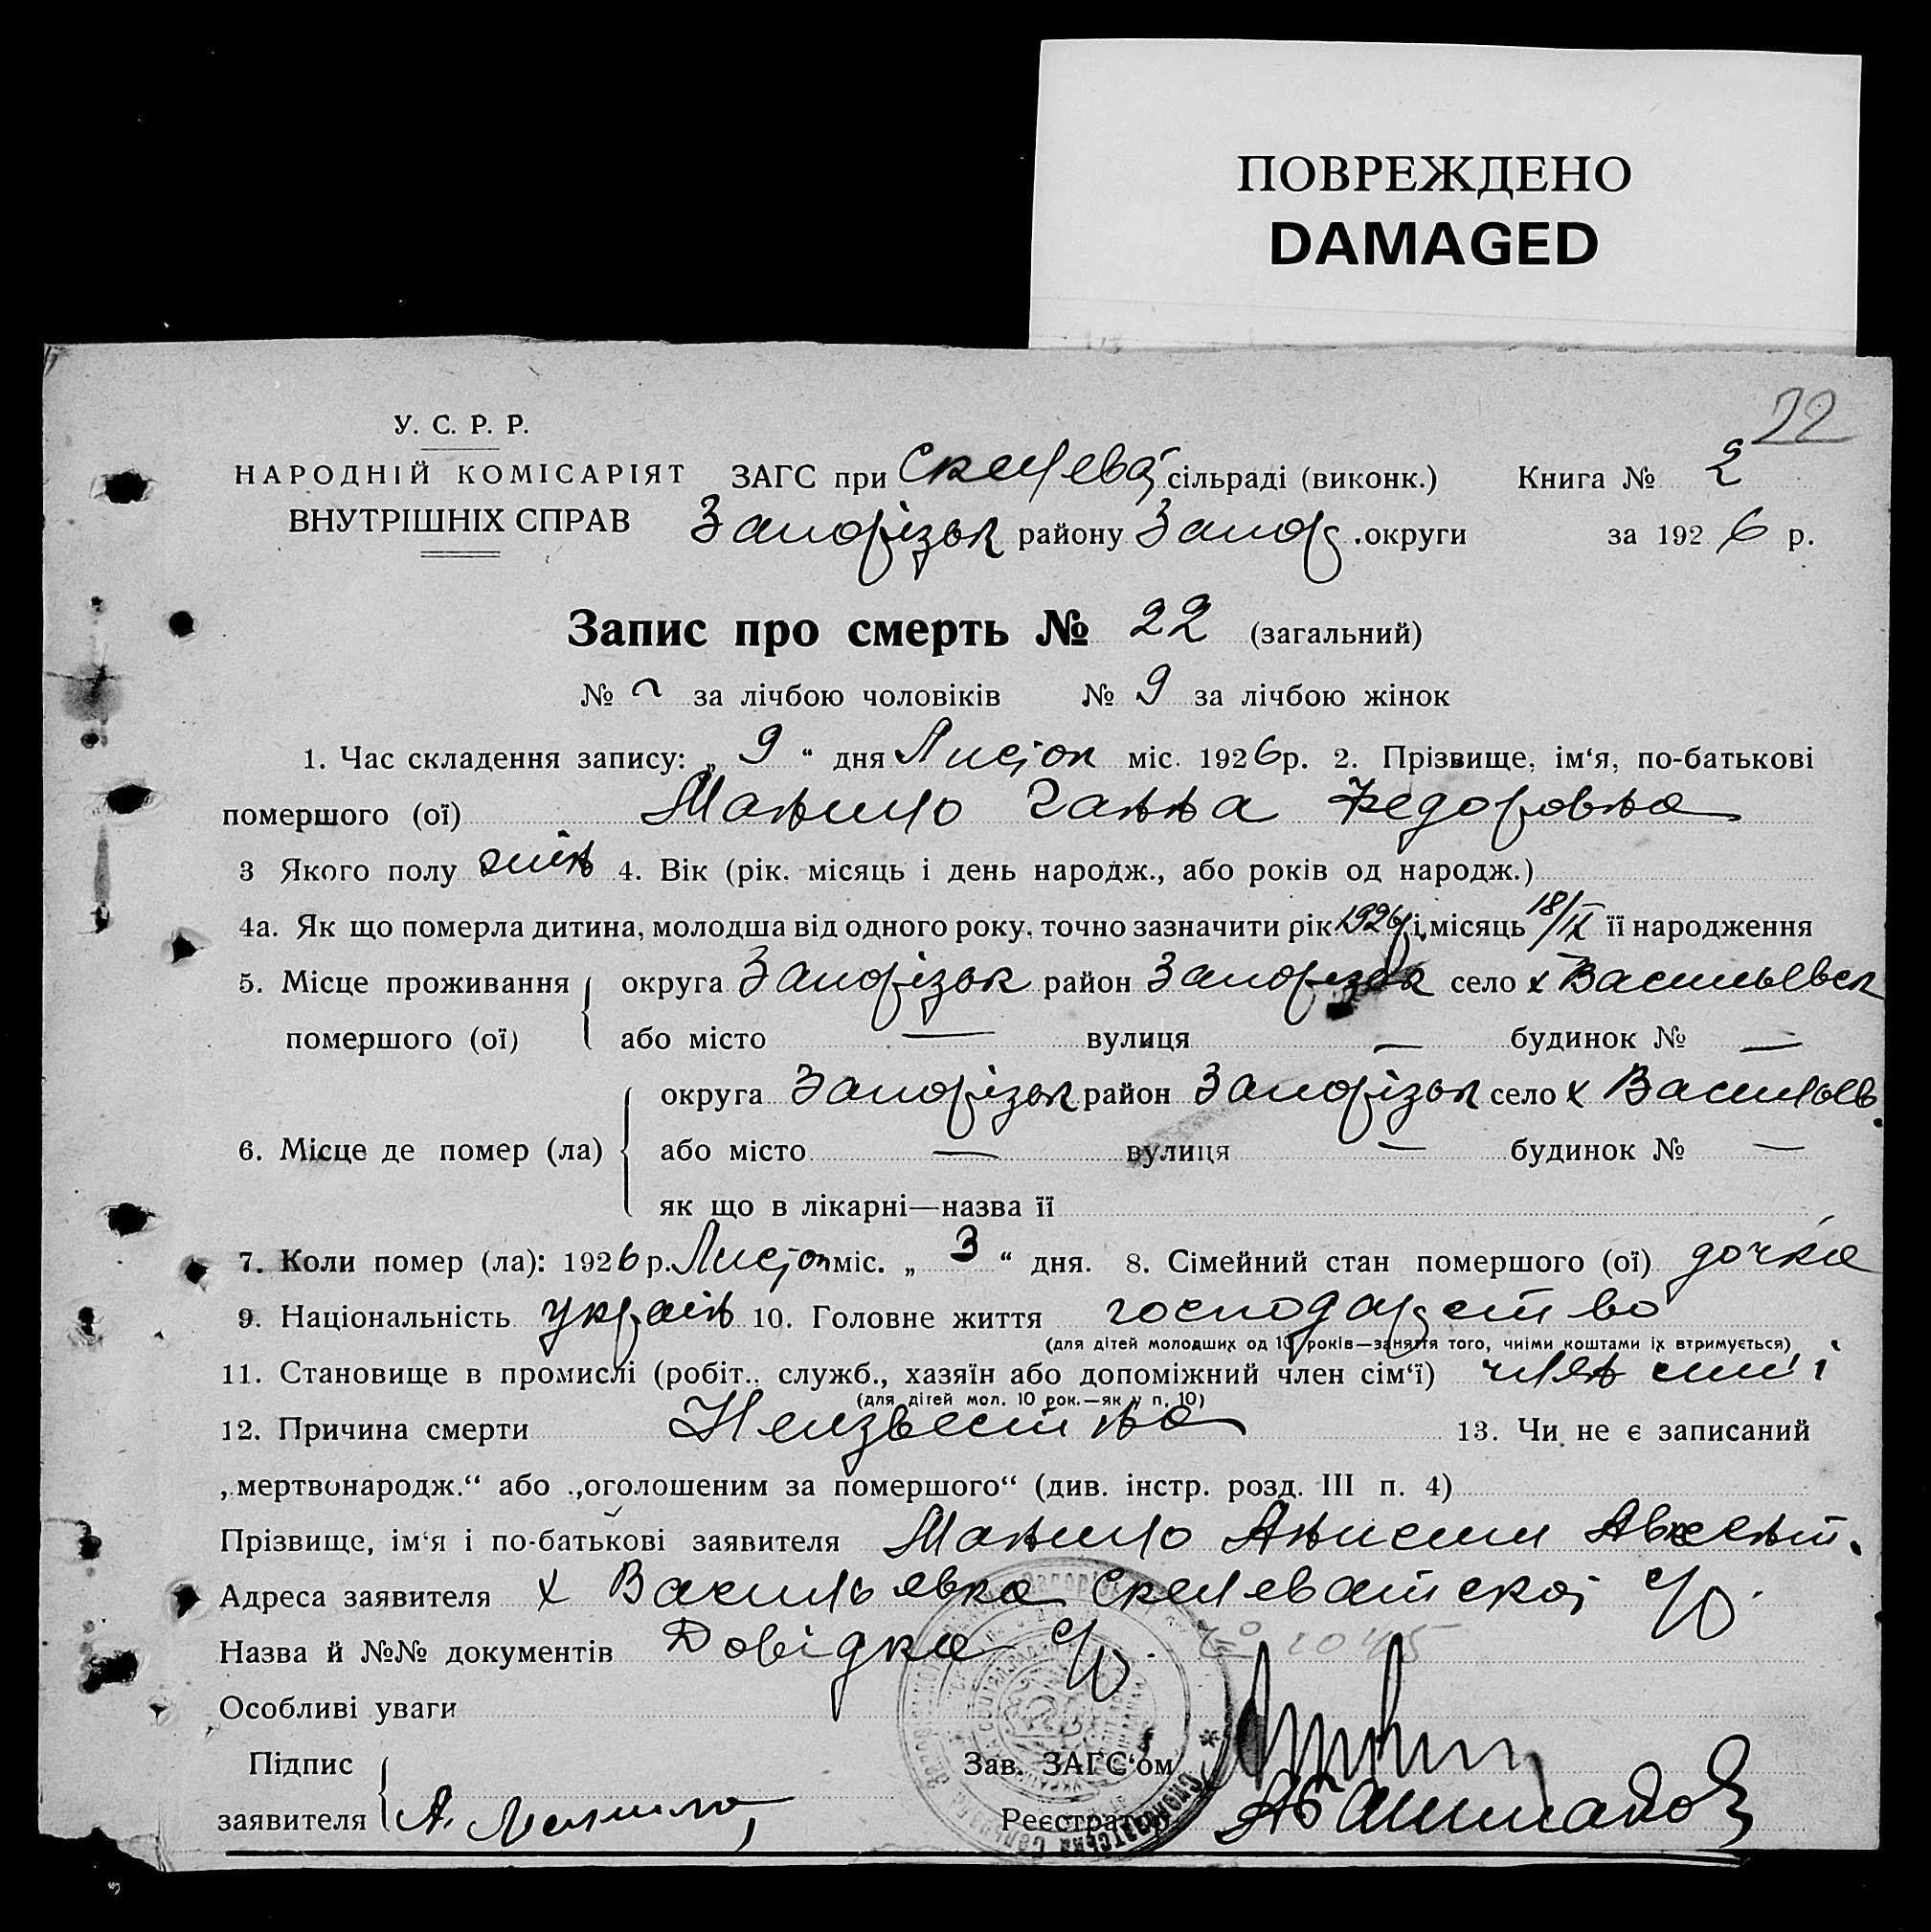 ПОВРЕЖДЕНО
DAMAGED
22
У. С. Р. Р.
НАРОДНІЙ КОМІСАРІЯТ ЗАГС при Скелева сільраді (виконк.) Книга № 2
ВНУТРІШНІХ СПРАВ Запорізьк району Запор. округи за 1926 р.
Запис про смерть № 22 (загальний)
№ за лічбою чоловіків № 9 за лічбою жінок
1. Час складення запису: „ 9 “ дня Листоп міс. 1926р. 2. Прізвище, ім‘я, по-батькові
помершого (ої) Манило Ганна Федоровна
3 Якого полу жін 4. Вік (рік, місяць і день народж., або років од народж.)
4а. Як що померла дитина, молодша від одного року, точно зазначити рік 1926 і місяць 18/IX її народження
5. Місце проживання округа Запорізьк район Запорізьк село х Васильевск
помершого (ої) або місто — вулиця — будинок № —
округа Запорізьк район Запорізьк село х Васильев.
6. Місце де помер (ла) або місто — вулиця — будинок № —
як що в лікарні—назва її
7. Коли помер (ла): 1926 р. Листоп міс. „ 3 “ дня. 8. Сімейний стан помершого (ої) дочка
9. Національність україн 10. Головне життя господарство
(для дітей молодших од 10 років—заняття того, чиїми коштами їх втримується)
11. Становище в промислі (робіт., служб., хазяїн або допоміжний член сім‘ї) член сим'ї
(для дітей мол. 10 рок.—як у п. 10)
12. Причина смерти Неизвестна 13. Чи не є записаний
„мертвонародж.“ або „оголошеним за помершого“ (див. інстр. розд. III п. 4)
Прізвище, ім‘я і по-батькові заявителя Манило Анисим Авксент.
Адреса заявителя х Васильявка Скелеватскої с/р.
Назва й №№ документів Довідка с/р.
Особливі уваги
Підпис Зав. ЗАГС‘ом
заявителя А. Манило Реєстратор